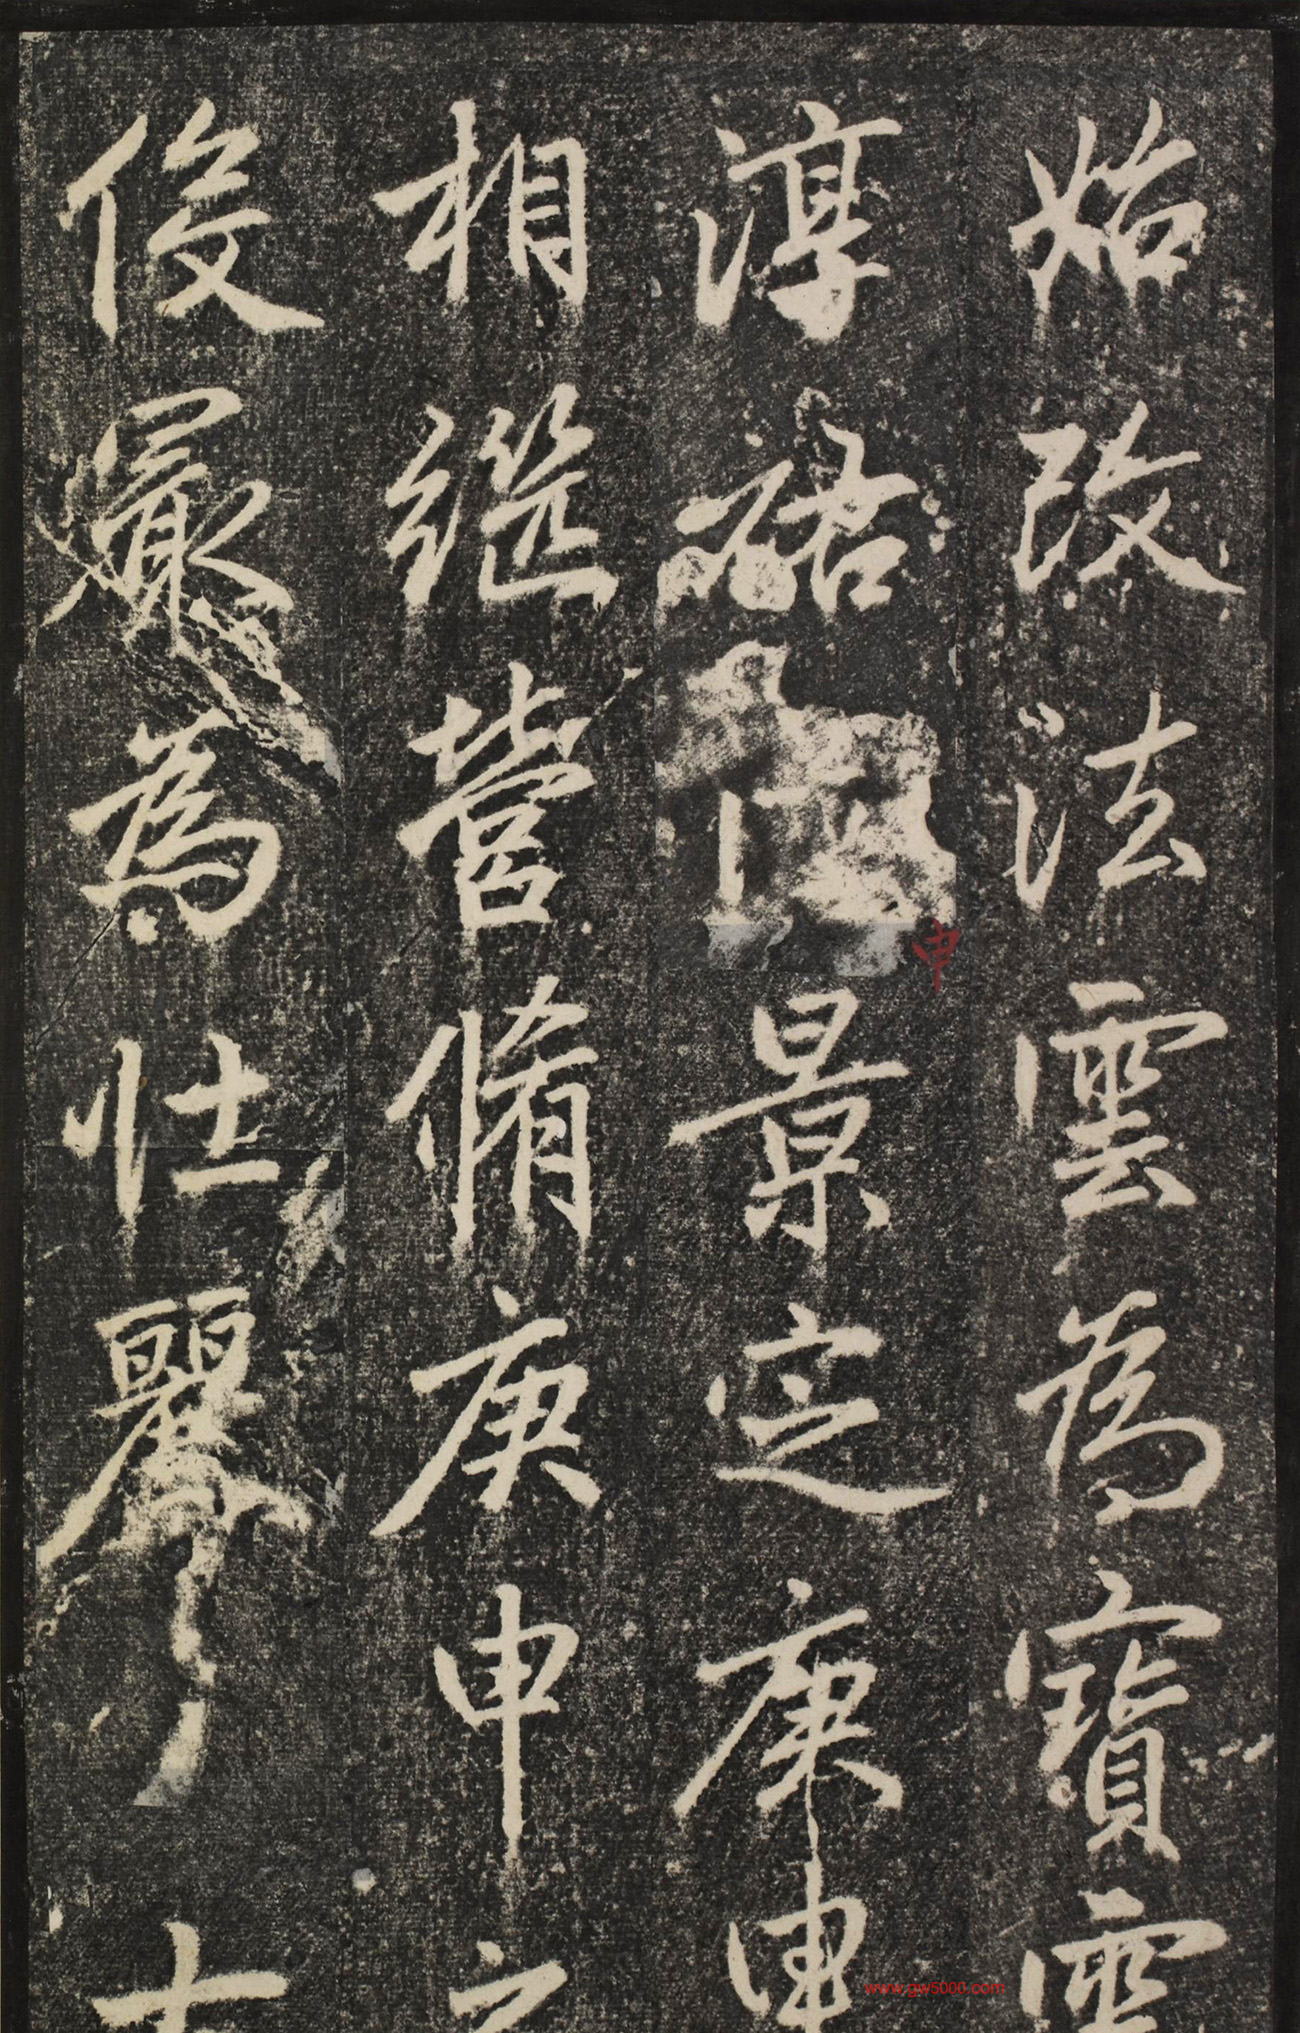 始改法雲為寶雲
淳祐景定庚申
相繼營脩庚申之
俊㝡為壯麗十
申
www.gw5000.com